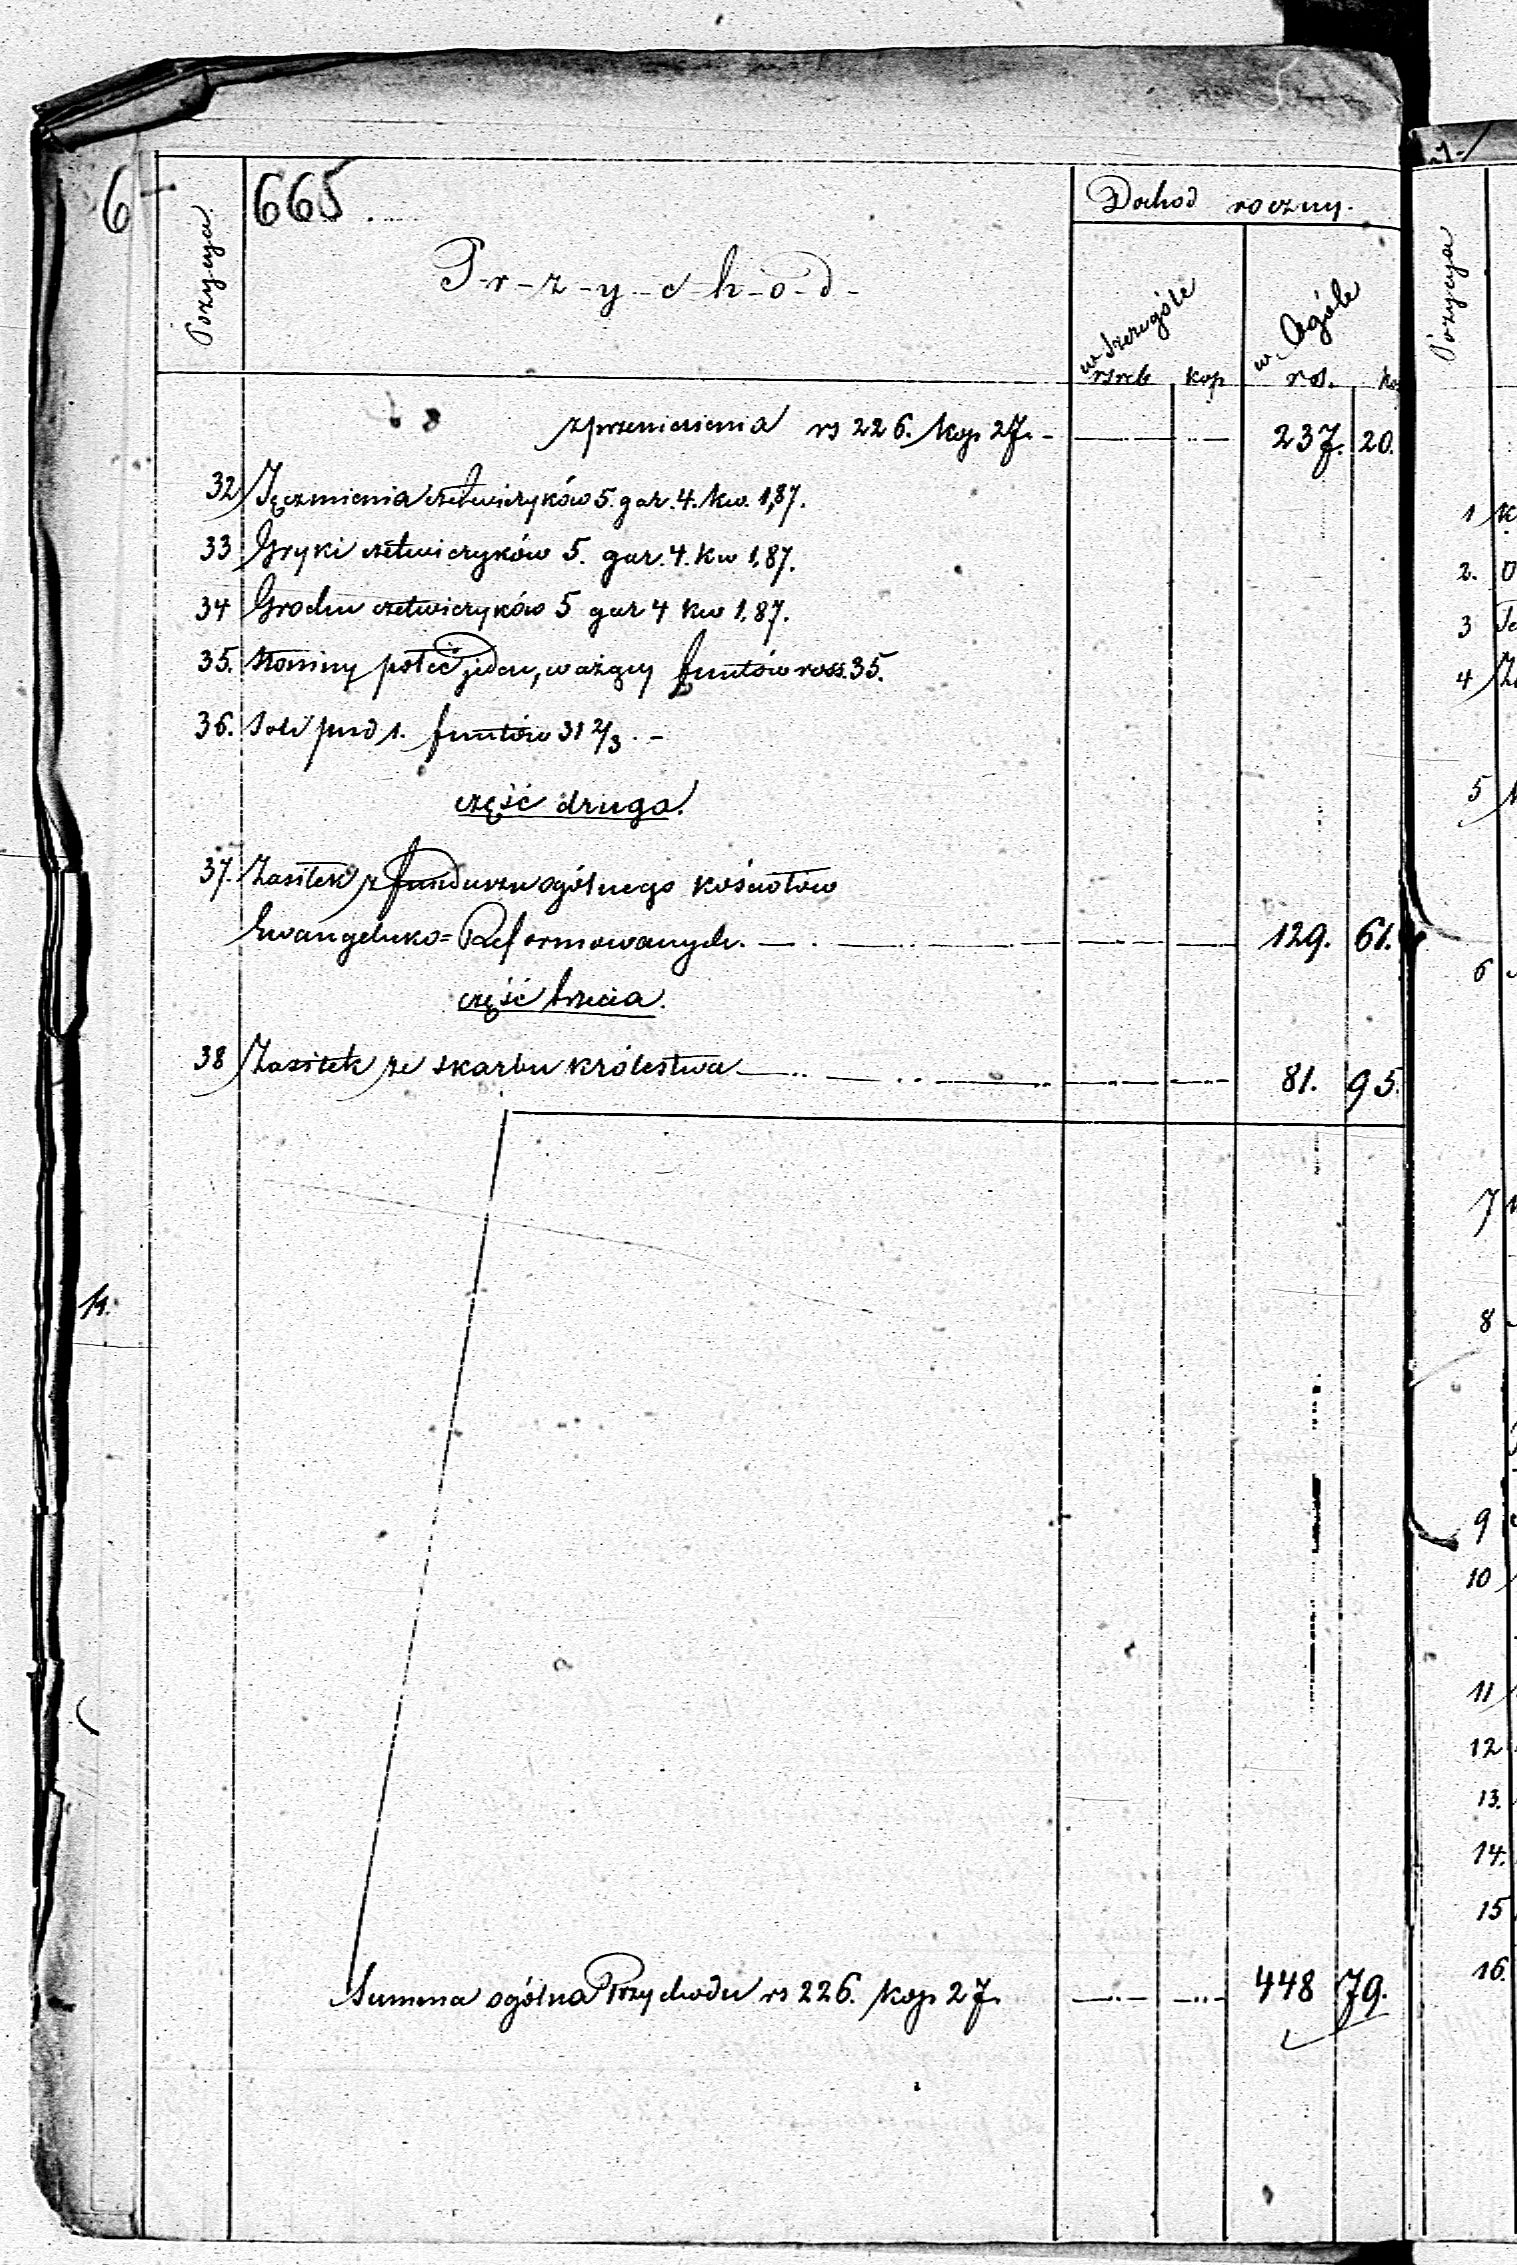 6 665
Pozycya
P-r-z-y-c-h-o-d-
Dochód roczny.
w szczególe
w Ogóle
rsreb kop rs. ko
z przeniesienia rs 226. kop 27. 237. 20.
32 Jęczmienia czetwieryków 5. gar. 4. kw. 1,87.
33 Gryki czetwieryków 5. gar. 4. kw 1,87.
34 Grochu czetwieryków 5 gar 4 kw 1.87.
35. Słoniny połeć jeden, ważący funtów ross. 35.
36. Soli pud 1. funtów 31 2/3.
część druga.
37. Zasiłek z funduszu ogólnego kościołów
Ewangelicko=Reformowanych. 129. 61.
część trzecia.
38 Zasiłek ze skarbu królestwa 81. 95.
Summa ogólna Przychodu rs 226. kop 27. 448 79.
Pozycya
1
2.
3
4
5
6
7
8
9
10
11
12
13.
14.
15
16.